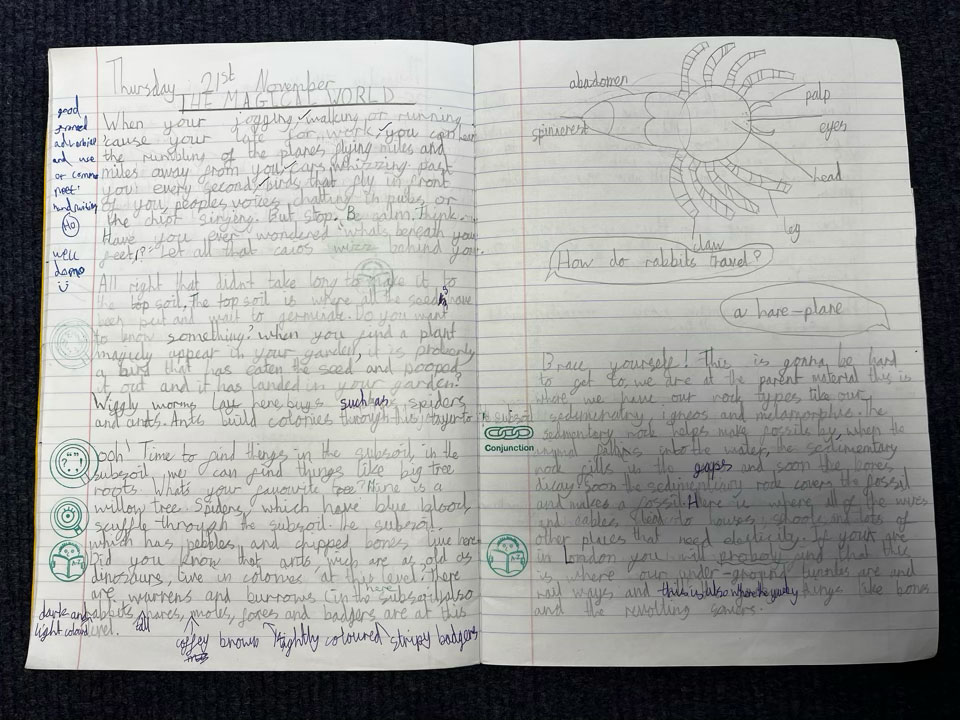 Thursday 21st November
THE MAGICAL WORLD
good
adverbial
and use
of comma
neet
handwriting
Ho
well
done
When your jogging, walking or running
'cause your late for work, you can hear
the rumbling of the planes flying miles and
miles away from you, cars whizzing past
you every second, birds that fly in front
of you, peoples voices chatting in pubs or
the choir singing. But stop. Be calm. Think.
Have you ever wondered whats beneath your
feet,? Let all that caios behind you.
All right that didnt take long to make it to
the top soil. The top soil is where all the seeds have
been put and wait to germinate. Do you want
to know something? when you find a plant
magicly appear in your garden, it is probably
a bird that has eaten the seed and pooped
it out and it has landed in your garden!
Wiggly worms lay here bugs such as spiders
and ants. Ants build colonies through this layer to
subsoil
ooh! Time to find things in the subsoil, in the
subsoil we can find things like big tree
roots. Whats your favourite tree? Mine is a
willow tree. Spiders, which have blue blood,
scuffle through the subsoil. the subsoil,
which has pebbles and chipped bones live here
Did you know that ants, wich are as old as
dinosaurs, live in colonies at this level. There
are warrens and burrows in the subsoil also here
rabbits, hares, moles, foxes and badgers are at this
level.
dark and
light coloured
tall
coffey brown
lightly coloured
stripy badgers
abadomen
spinnerest
palp
eyes
head
leg
claw
How do rabbits travel?
a hare-plane
Conjunction
Brace yourselfs! This is gonna be hard
to get to, we are at the parent material this is
where we have our rock types like our
sedimentary igneos and metamorphic. The
sedimentary rock helps make fossile by, when the
animal fallars into the water, the sedimentary
rock fills in the gaps and soon the bones
dicay. Soon the sedimentary rock covers the fossil
and makes a fossil. Here is where all of the wires
and cables lead to houses, schools and lots of
other places that need elecktricity. If your are
in London you will probaly find that this
is where our under-ground tunnles are and
rail ways and this is also where the yucky things like bones
and the revolting sewers.